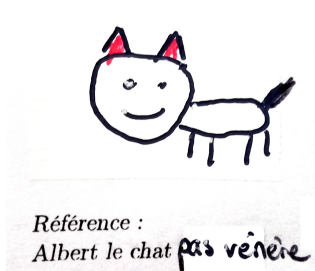 Référence :
Albert le chat pas vénère